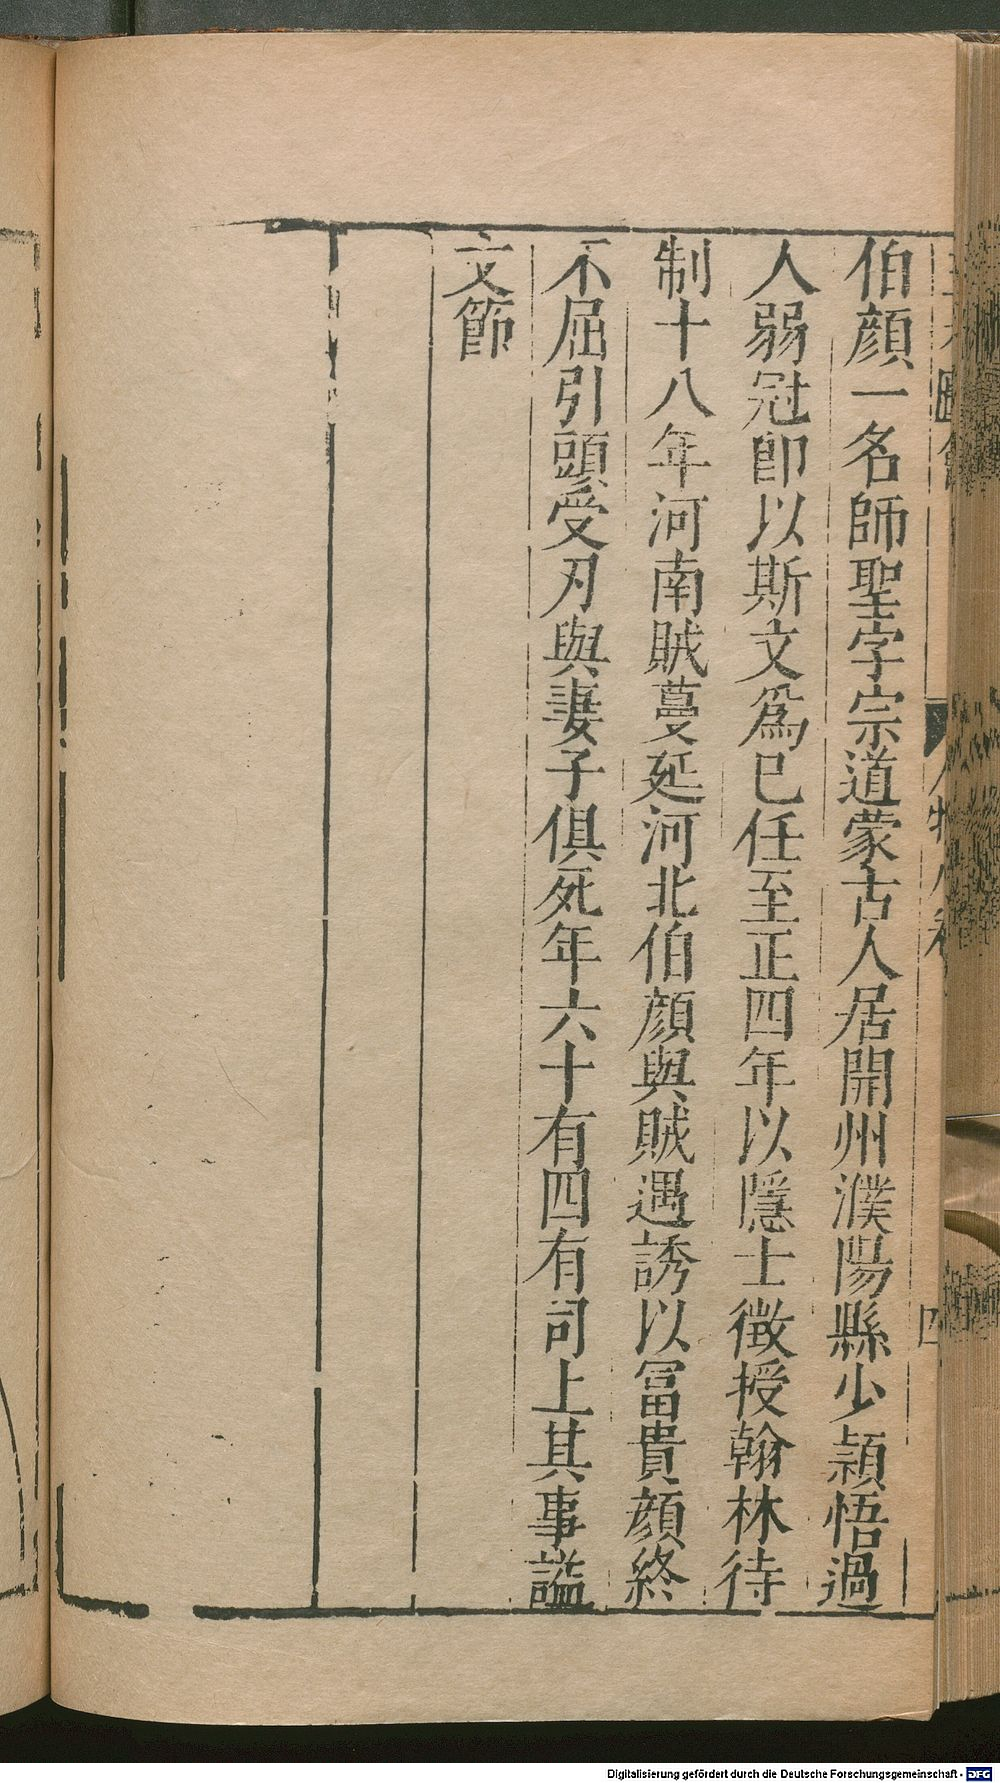 伯顔一名師聖字宗道蒙古人居開州濮陽縣少頴悟過
人弱冠卽以斯文爲已任至正四年以隱士徴授翰林待
制十八年河南賊蔓延河北伯顔與賊遇誘以冨貴顔終
不屈引頭受刃與妻子俱死年六十有四有司上其事謚
文節
Digitalisierung gefördert durch die Deutsche Forschungsgemeinschaft - DFG